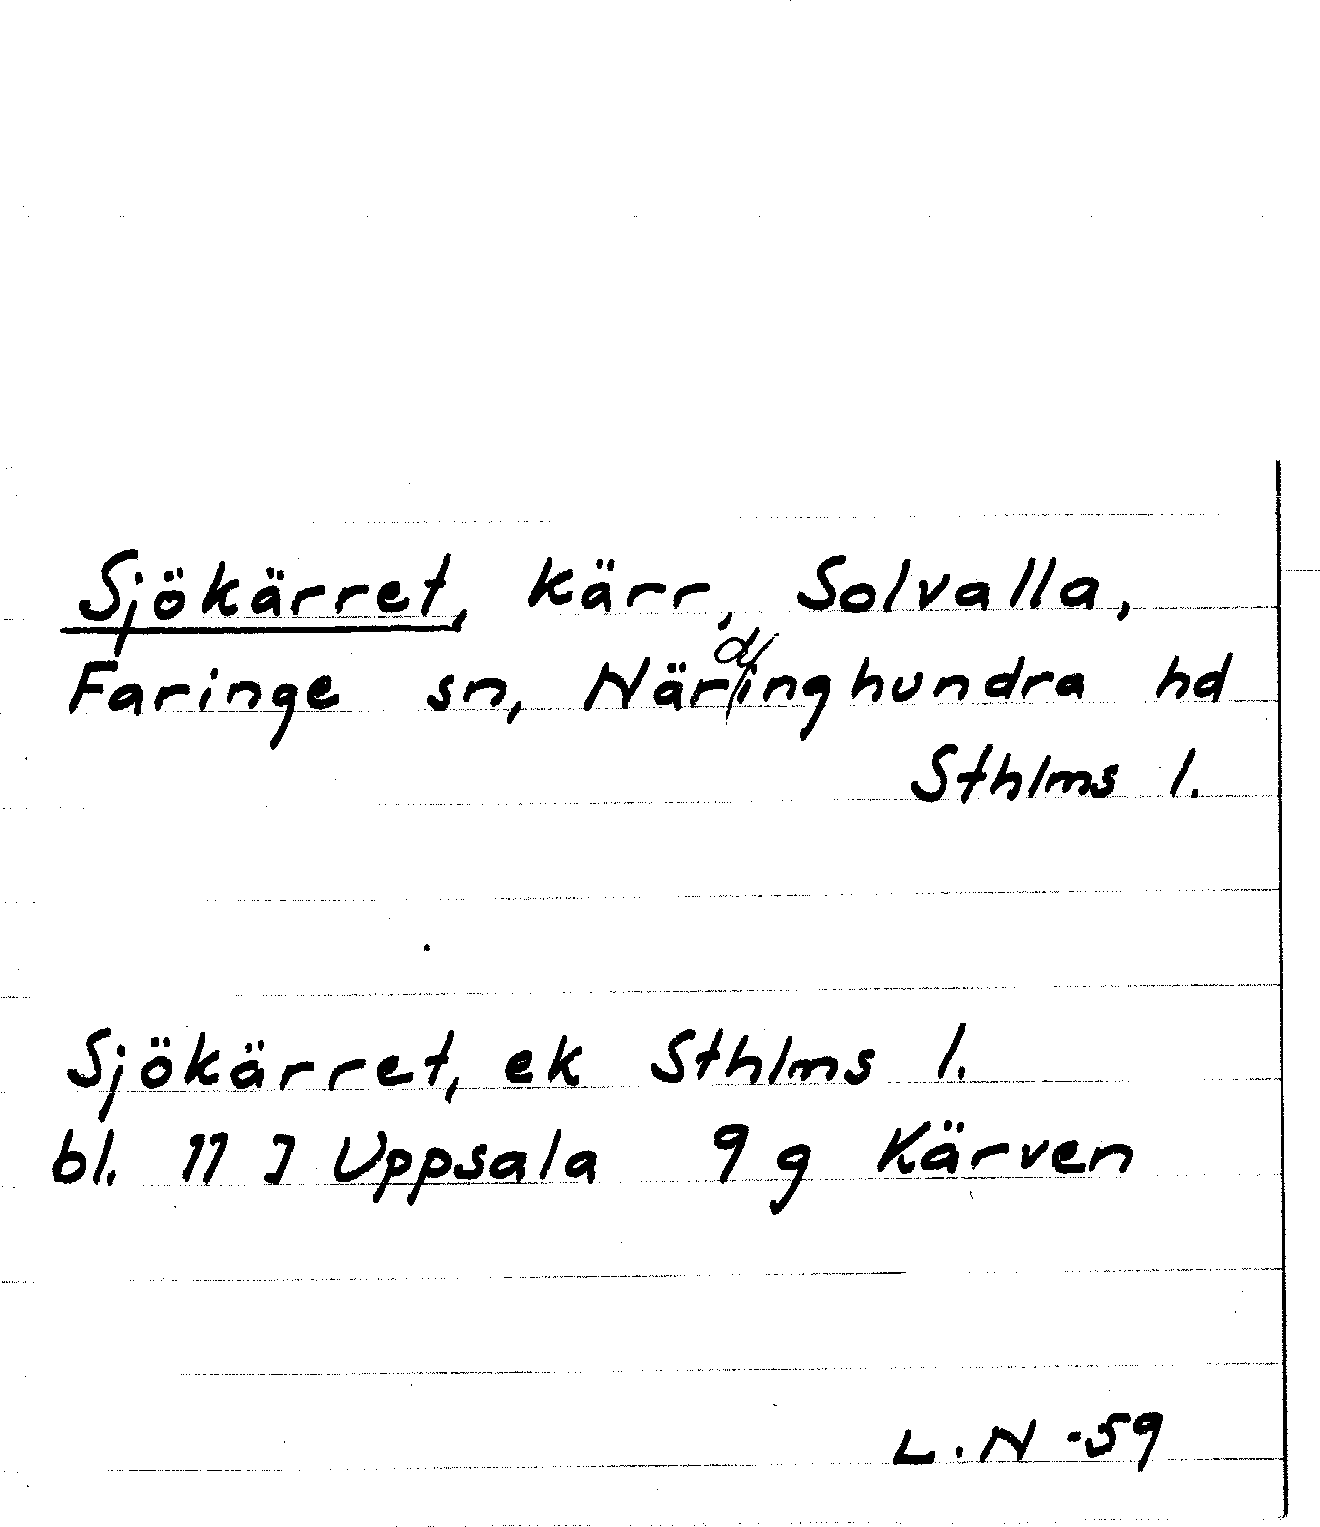 Sjökärret, kärr, Solvalla,
Faringe sn, Närdinghundra hd
Sthlms l.
Sjökärret, ek Sthlms l.
bl. 11 J Uppsala 9 g Kärven
L.N -59